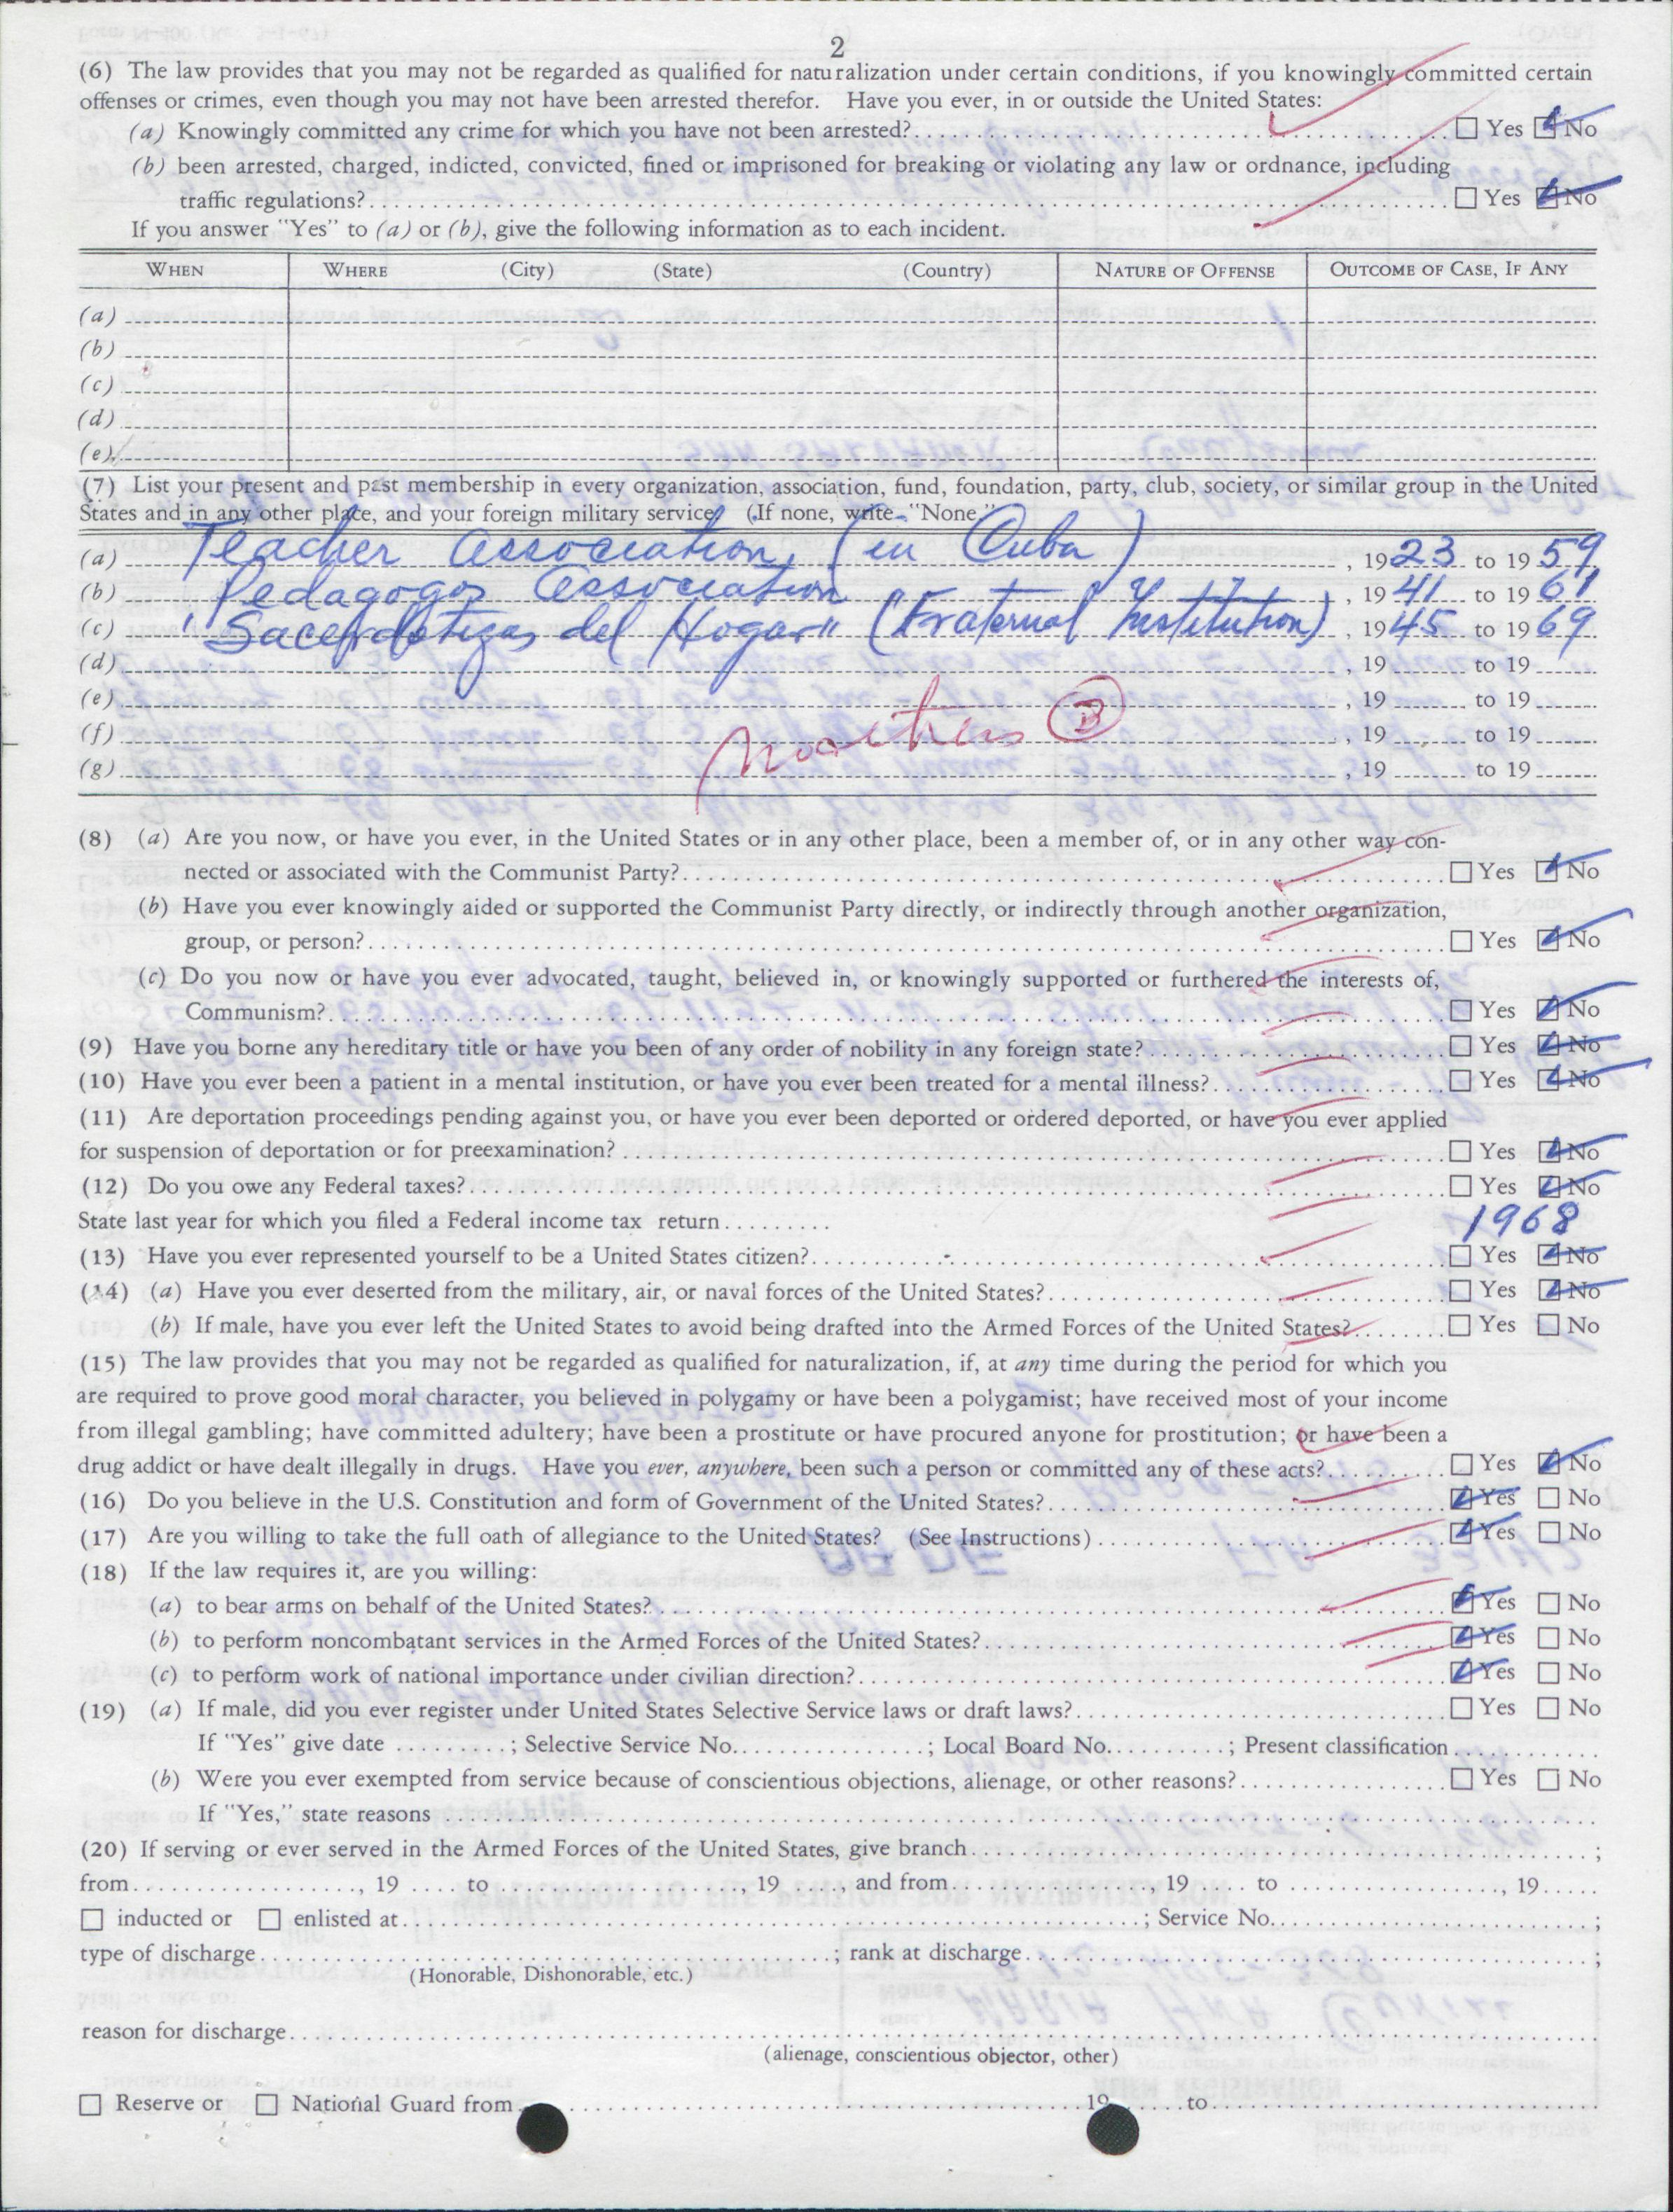 2
(6) The law provides that you may not be regarded as qualified for naturalization under certain conditions, if you knowingly committed certain
offenses or crimes, even though you may not have been arrested therefor. Have you ever, in or outside the United States:
(a) Knowingly committed any crime for which you have not been arrested? ☐ Yes ☑ No
(b) been arrested, charged, indicted, convicted, fined or imprisoned for breaking or violating any law or ordnance, including
traffic regulations? ☐ Yes ☑ No
If you answer "Yes" to (a) or (b), give the following information as to each incident.
WHEN WHERE (City) (State) (Country) NATURE OF OFFENSE OUTCOME OF CASE, IF ANY
(a)
(b)
(c)
(d)
(e)
(7) List your present and past membership in every organization, association, fund, foundation, party, club, society, or similar group in the United
States and in any other place, and your foreign military service. (If none, write "None.")
(a) Teacher Association, (in Cuba) , 1923 to 1959
(b) Pedagogos Association , 1941 to 1961
(c) "Sacerdotizas del Hogar" (Fraternal Institution) , 1945 to 1969
(d) , 19 to 19
(e) , 19 to 19
(f) , 19 to 19
(g) , 19 to 19
(8) (a) Are you now, or have you ever, in the United States or in any other place, been a member of, or in any other way con-
nected or associated with the Communist Party? ☐ Yes ☑ No
(b) Have you ever knowingly aided or supported the Communist Party directly, or indirectly through another organization,
group, or person? ☐ Yes ☑ No
(c) Do you now or have you ever advocated, taught, believed in, or knowingly supported or furthered the interests of,
Communism? ☐ Yes ☑ No
(9) Have you borne any hereditary title or have you been of any order of nobility in any foreign state? ☐ Yes ☑ No
(10) Have you ever been a patient in a mental institution, or have you ever been treated for a mental illness? ☐ Yes ☑ No
(11) Are deportation proceedings pending against you, or have you ever been deported or ordered deported, or have you ever applied
for suspension of deportation or for preexamination? ☐ Yes ☑ No
(12) Do you owe any Federal taxes? ☐ Yes ☑ No
State last year for which you filed a Federal income tax return 1968
(13) Have you ever represented yourself to be a United States citizen? ☐ Yes ☑ No
(14) (a) Have you ever deserted from the military, air, or naval forces of the United States? ☐ Yes ☑ No
(b) If male, have you ever left the United States to avoid being drafted into the Armed Forces of the United States? ☐ Yes ☐ No
(15) The law provides that you may not be regarded as qualified for naturalization, if, at any time during the period for which you
are required to prove good moral character, you believed in polygamy or have been a polygamist; have received most of your income
from illegal gambling; have committed adultery; have been a prostitute or have procured anyone for prostitution; or have been a
drug addict or have dealt illegally in drugs. Have you ever, anywhere, been such a person or committed any of these acts? ☐ Yes ☑ No
(16) Do you believe in the U.S. Constitution and form of Government of the United States? ☑ Yes ☐ No
(17) Are you willing to take the full oath of allegiance to the United States? (See Instructions) ☑ Yes ☐ No
(18) If the law requires it, are you willing:
(a) to bear arms on behalf of the United States? ☑ Yes ☐ No
(b) to perform noncombatant services in the Armed Forces of the United States? ☑ Yes ☐ No
(c) to perform work of national importance under civilian direction? ☑ Yes ☐ No
(19) (a) If male, did you ever register under United States Selective Service laws or draft laws? ☐ Yes ☐ No
If "Yes" give date ; Selective Service No. ; Local Board No. ; Present classification
(b) Were you ever exempted from service because of conscientious objections, alienage, or other reasons? ☐ Yes ☐ No
If "Yes," state reasons
(20) If serving or ever served in the Armed Forces of the United States, give branch ;
from , 19 to , 19 , and from , 19 to , 19
☐ inducted or ☐ enlisted at ; Service No. ;
type of discharge ; rank at discharge ;
(Honorable, Dishonorable, etc.)
reason for discharge
(alienage, conscientious objector, other)
☐ Reserve or ☐ National Guard from 19 to